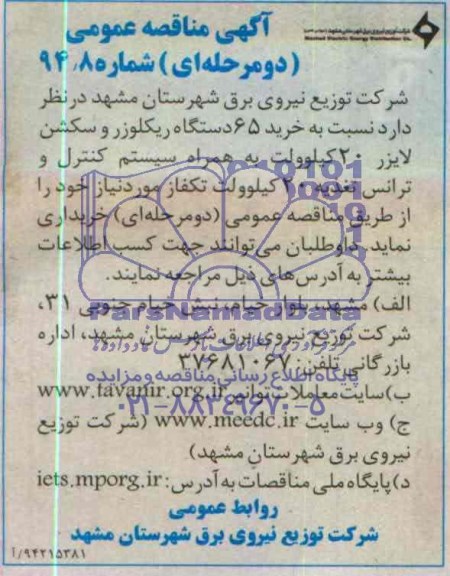 شرکت توزیع نیروی برق شهرستان مشهد
Mashad Electric Energy Distribution Co.
آگهی مناقصه عمومی
(دومرحله‌ای) شماره ۹۴٫۸
شرکت توزیع نیروی برق شهرستان مشهد در نظر
دارد نسبت به خرید ۶۵ دستگاه ریکلوزر و سکشن
لایزر ۲۰ کیلوولت به همراه سیستم کنترل و
ترانس تغذیه ۲۰ کیلوولت تکفاز مورد نیاز خود را
از طریق مناقصه عمومی (دومرحله‌ای) خریداری
نماید. داوطلبان می‌توانند جهت کسب اطلاعات
بیشتر به آدرس‌های ذیل مراجعه نمایند.
الف) مشهد، بلوار خیام، نبش خیام جنوبی ۳۱،
ParsNamadData
شرکت توزیع نیروی برق شهرستان مشهد، اداره
بازرگانی تلفن: ۳۷۶۸۱۰۶۷
پایگاه اطلاع رسانی مناقصه و مزایده
ب) سایت معاملات توانیر www.tavanir.org.ir
۰۲۱-۸۸۳۴۹۶۷۰-۵
ج) وب سایت www.meedc.ir (شرکت توزیع
نیروی برق شهرستان مشهد)
د) پایگاه ملی مناقصات به آدرس: iets.mporg.ir
روابط عمومی
شرکت توزیع نیروی برق شهرستان مشهد
۹۴۲۱۵۳۸۱/آ